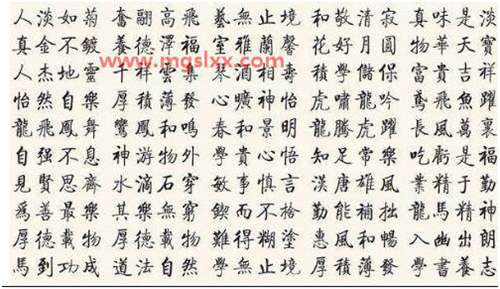 人淡如菊 奮翮高飛 藝無止境 和敬清寂 真味是淡
真金不鍍 養德澤福 室雅蘭馨 花好月圓 物華天寶
www.mgslxx.com
人杰地靈 千祥雲集 琴 相壽 學儲保 富貴吉祥
怡然自樂 厚積薄發 心曠神怡 虎嘯龍吟 鳶飛魚躍
龍飛鳳舞 鸞鳳和鳴 春和景明 龍騰虎躍 長風萬裏
自强不息 神游物外 學貴心悟 知足常樂 吃虧是福
見賢思齊 水滴石穿 敏事慎言 漢唐雄風 業精于勤
爲善最樂 其樂無窮 鍥而不捨 勤能補拙 龍馬精神
厚德載物 厚德載物 難得糊塗 惠風和暢 入幽出朗
馬到功成 道法自然 學無止境 厚積薄發 學書養志